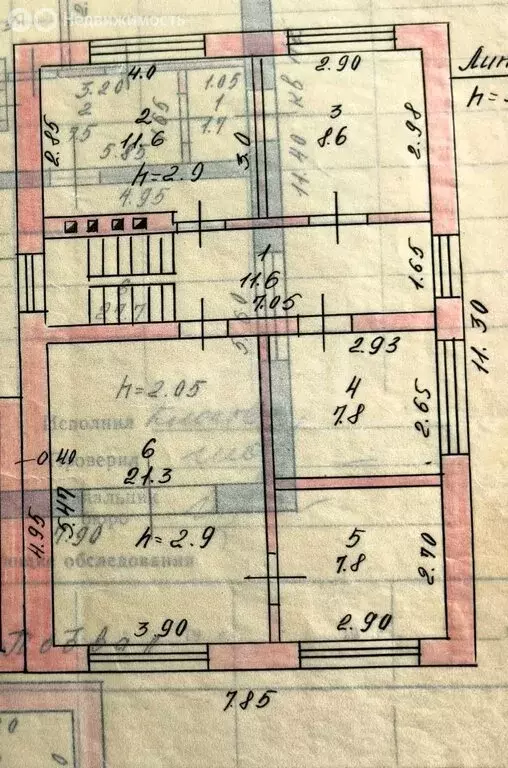 Недвижимость
4.0
2.90
Лит
h=
3.20
2
1.05
1
1.7
2
11.6
5.85
3
8.6
2.85
3.0
11.40
кв
2.98
h=2.9
4.95
1
11.6
7.05
1.65
11.30
2.93
h=2.05
4
7.8
2.65
Исполнил
0.40
6
21.3
5.47
4.95
7.90
бюро
h=2.9
обследования
5
7.8
2.70
3.90
2.90
7.85